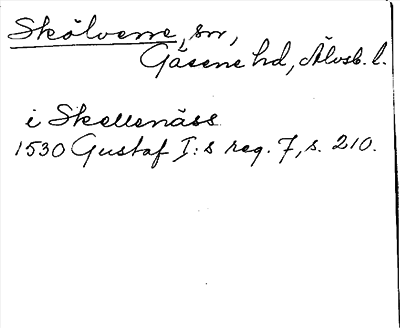 Skölvene, sn,
Gäsene hd, Älvsb. l.
i Skellenäss
1530 Gustaf I:s reg. 7, s. 210.